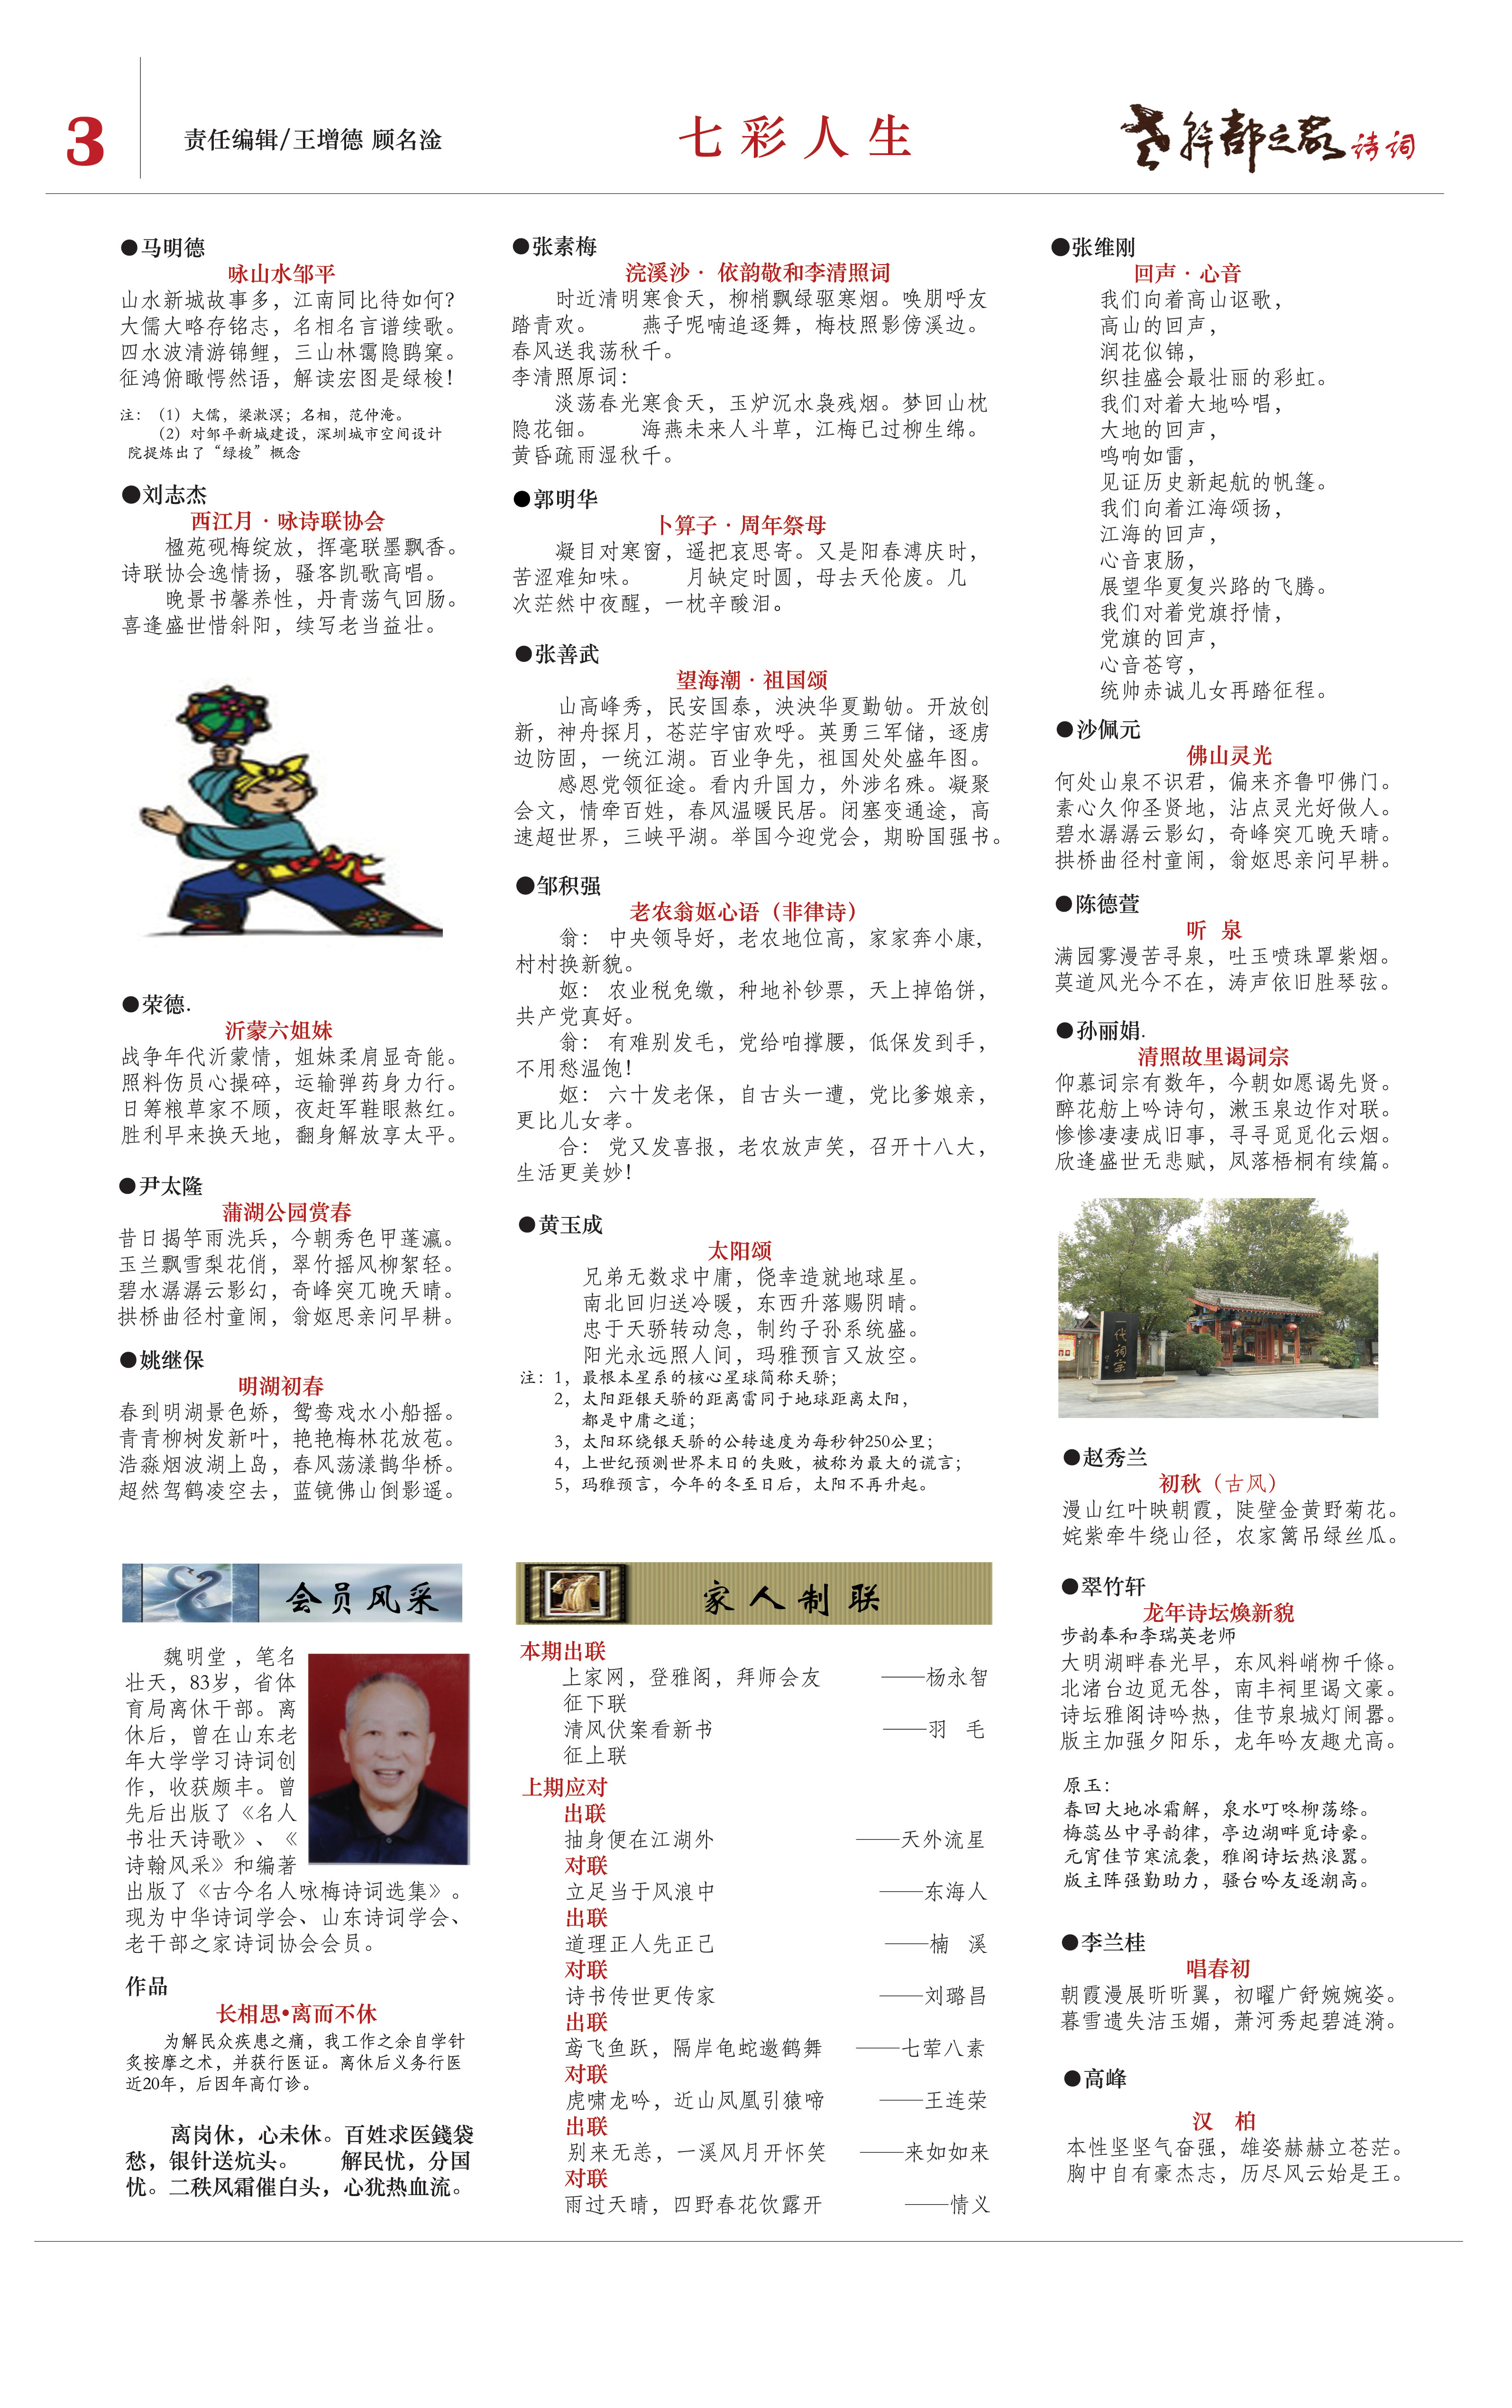 3
责任编辑/王增德 顾名淦
七彩人生
老幹部之家诗词
●马明德
咏山水邹平
山水新城故事多，江南同比待如何？
大儒大略存铭志，名相名言谱续歌。
四水波清游锦鲤，三山林霭隐鹍窠。
征鸿俯瞰愕然语，解读宏图是绿梭！
注：（1）大儒，梁漱溟；名相，范仲淹。
（2）对邹平新城建设，深圳城市空间设计
院提炼出了“绿梭”概念
●刘志杰
西江月·咏诗联协会
楹苑砚梅绽放，挥毫联墨飘香。
诗联协会逸情扬，骚客凯歌高唱。
晚景书馨养性，丹青荡气回肠。
喜逢盛世惜斜阳，续写老当益壮。
●荣德.
沂蒙六姐妹
战争年代沂蒙情，姐妹柔肩显奇能。
照料伤员心操碎，运输弹药身力行。
日筹粮草家不顾，夜赶军鞋眼熬红。
胜利早来换天地，翻身解放享太平。
●尹太隆
蒲湖公园赏春
昔日揭竿雨洗兵，今朝秀色甲蓬瀛。
玉兰飘雪梨花俏，翠竹摇风柳絮轻。
碧水潺潺云影幻，奇峰突兀晚天晴。
拱桥曲径村童闹，翁妪思亲问早耕。
●姚继保
明湖初春
春到明湖景色娇，鸳鸯戏水小船摇。
青青柳树发新叶，艳艳梅林花放苞。
浩淼烟波湖上岛，春风荡漾鹊华桥。
超然驾鹤凌空去，蓝镜佛山倒影遥。
会员风采
魏明堂，笔名
壮天，83岁，省体
育局离休干部。离
休后，曾在山东老
年大学学习诗词创
作，收获颇丰。曾
先后出版了《名人
书壮天诗歌》、《
诗翰风采》和编著
出版了《古今名人咏梅诗词选集》。
现为中华诗词学会、山东诗词学会、
老干部之家诗词协会会员。
作品
长相思•离而不休
为解民众疾患之痛，我工作之余自学针
炙按摩之术，并获行医证。离休后义务行医
近20年，后因年高仃诊。
离岗休，心未休。百姓求医錢袋
愁，银针送炕头。 解民忧，分国
忧。二秩风霜催白头，心犹热血流。
●张素梅
浣溪沙· 依韵敬和李清照词
时近清明寒食天，柳梢飘绿驱寒烟。唤朋呼友
踏青欢。 燕子呢喃追逐舞，梅枝照影傍溪边。
春风送我荡秋千。
李清照原词：
淡荡春光寒食天，玉炉沉水袅残烟。梦回山枕
隐花钿。 海燕未来人斗草，江梅已过柳生绵。
黄昏疏雨湿秋千。
●郭明华
卜算子·周年祭母
凝目对寒窗，遥把哀思寄。又是阳春溥庆时，
苦涩难知味。 月缺定时圆，母去天伦废。几
次茫然中夜醒，一枕辛酸泪。
●张善武
望海潮·祖国颂
山高峰秀，民安国泰，泱泱华夏勤劬。开放创
新，神舟探月，苍茫宇宙欢呼。英勇三军储，逐虏
边防固，一统江湖。百业争先，祖国处处盛年图。
感恩党领征途。看内升国力，外涉名殊。凝聚
会文，情牵百姓，春风温暖民居。闭塞变通途，高
速超世界，三峡平湖。举国今迎党会，期盼国强书。
●邹积强
老农翁妪心语（非律诗）
翁： 中央领导好，老农地位高，家家奔小康，
村村换新貌。
妪： 农业税免缴，种地补钞票，天上掉馅饼，
共产党真好。
翁： 有难别发毛，党给咱撑腰，低保发到手，
不用愁温饱！
妪： 六十发老保，自古头一遭，党比爹娘亲，
更比儿女孝。
合： 党又发喜报，老农放声笑，召开十八大，
生活更美妙！
●黄玉成
太阳颂
兄弟无数求中庸，侥幸造就地球星。
南北回归送冷暖，东西升落赐阴晴。
忠于天骄转动急，制约子孙系统盛。
阳光永远照人间，玛雅预言又放空。
注：1，最根本星系的核心星球简称天骄；
2，太阳距银天骄的距离雷同于地球距离太阳，
都是中庸之道；
3，太阳环绕银天骄的公转速度为每秒钟250公里；
4，上世纪预测世界末日的失败，被称为最大的谎言；
5，玛雅预言，今年的冬至日后，太阳不再升起。
家人制联
本期出联
上家网，登雅阁，拜师会友 ——杨永智
征下联
清风伏案看新书 ——羽 毛
征上联
上期应对
出联
抽身便在江湖外 ——天外流星
对联
立足当于风浪中 ——东海人
出联
道理正人先正己 ——楠 溪
对联
诗书传世更传家 ——刘璐昌
出联
鸢飞鱼跃，隔岸龟蛇邀鹤舞 ——七荤八素
对联
虎啸龙吟，近山凤凰引猿啼 ——王连荣
出联
别来无恙，一溪风月开怀笑 ——来如如来
对联
雨过天晴，四野春花饮露开 ——情义
●张维刚
回声·心音
我们向着高山讴歌，
高山的回声，
润花似锦，
织挂盛会最壮丽的彩虹。
我们对着大地吟唱，
大地的回声，
鸣响如雷，
见证历史新起航的帆篷。
我们向着江海颂扬，
江海的回声，
心音衷肠，
展望华夏复兴路的飞腾。
我们对着党旗抒情，
党旗的回声，
心音苍穹，
统帅赤诚儿女再踏征程。
●沙佩元
佛山灵光
何处山泉不识君，偏来齐鲁叩佛门。
素心久仰圣贤地，沾点灵光好做人。
碧水潺潺云影幻，奇峰突兀晚天晴。
拱桥曲径村童闹，翁妪思亲问早耕。
●陈德萱
听 泉
满园雾漫苦寻泉，吐玉喷珠罩紫烟。
莫道风光今不在，涛声依旧胜琴弦。
●孙丽娟.
清照故里谒词宗
仰慕词宗有数年，今朝如愿谒先贤。
醉花舫上吟诗句，漱玉泉边作对联。
惨惨凄凄成旧事，寻寻觅觅化云烟。
欣逢盛世无悲赋，凤落梧桐有续篇。
一代词宗
●赵秀兰
初秋（古风）
漫山红叶映朝霞，陡壁金黄野菊花。
姹紫牵牛绕山径，农家篱吊绿丝瓜。
●翠竹轩
龙年诗坛煥新貌
步韵奉和李瑞英老师
大明湖畔春光早，东风料峭柳千條。
北渚台边觅无咎，南丰祠里谒文豪。
诗坛雅阁诗吟热，佳节泉城灯闹嚣。
版主加强夕阳乐，龙年吟友趣尤高。
原玉：
春回大地冰霜解，泉水叮咚柳荡绦。
梅蕊丛中寻韵律，亭边湖畔觅诗豪。
元宵佳节寒流袭，雅阁诗坛热浪嚣。
版主阵强勤助力，骚台吟友逐潮高。
●李兰桂
唱春初
朝霞漫展昕昕翼，初曜广舒婉婉姿。
暮雪遗失洁玉媚，萧河秀起碧涟漪。
●高峰
汉 柏
本性坚坚气奋强，雄姿赫赫立苍茫。
胸中自有豪杰志，历尽风云始是王。